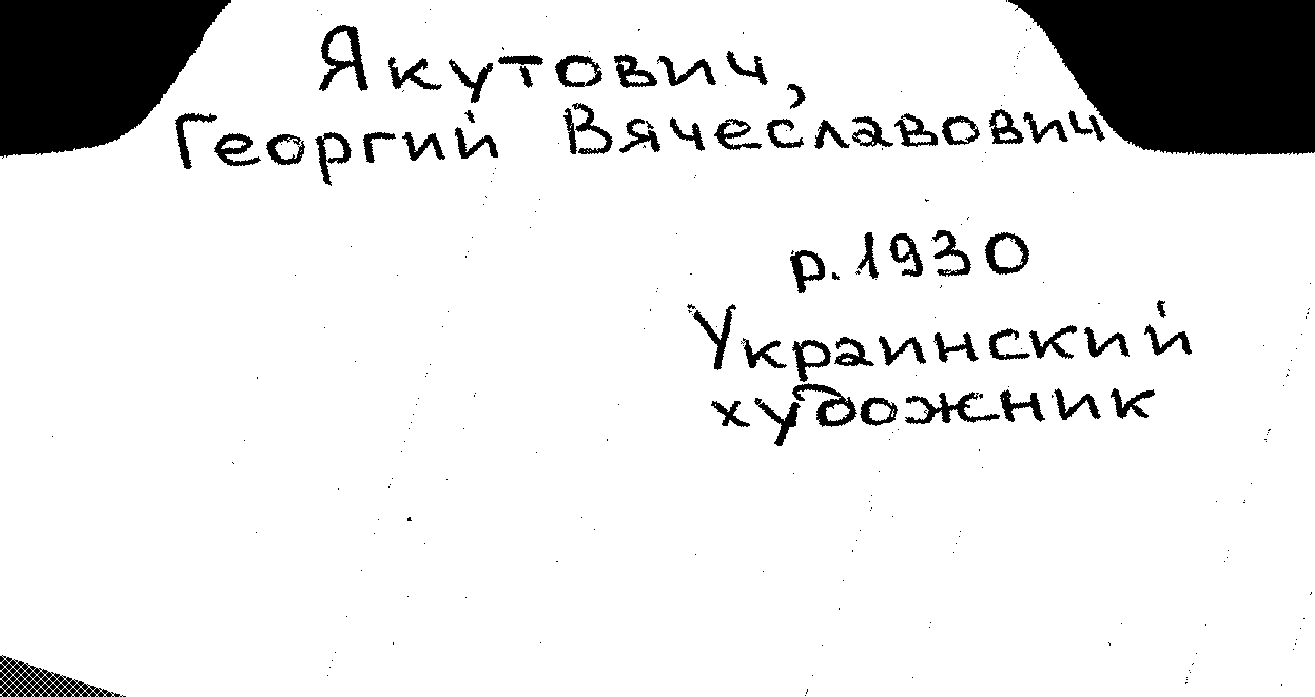 Якутович,
Георгий Вячеславович
р. 1930
Украинский
художник